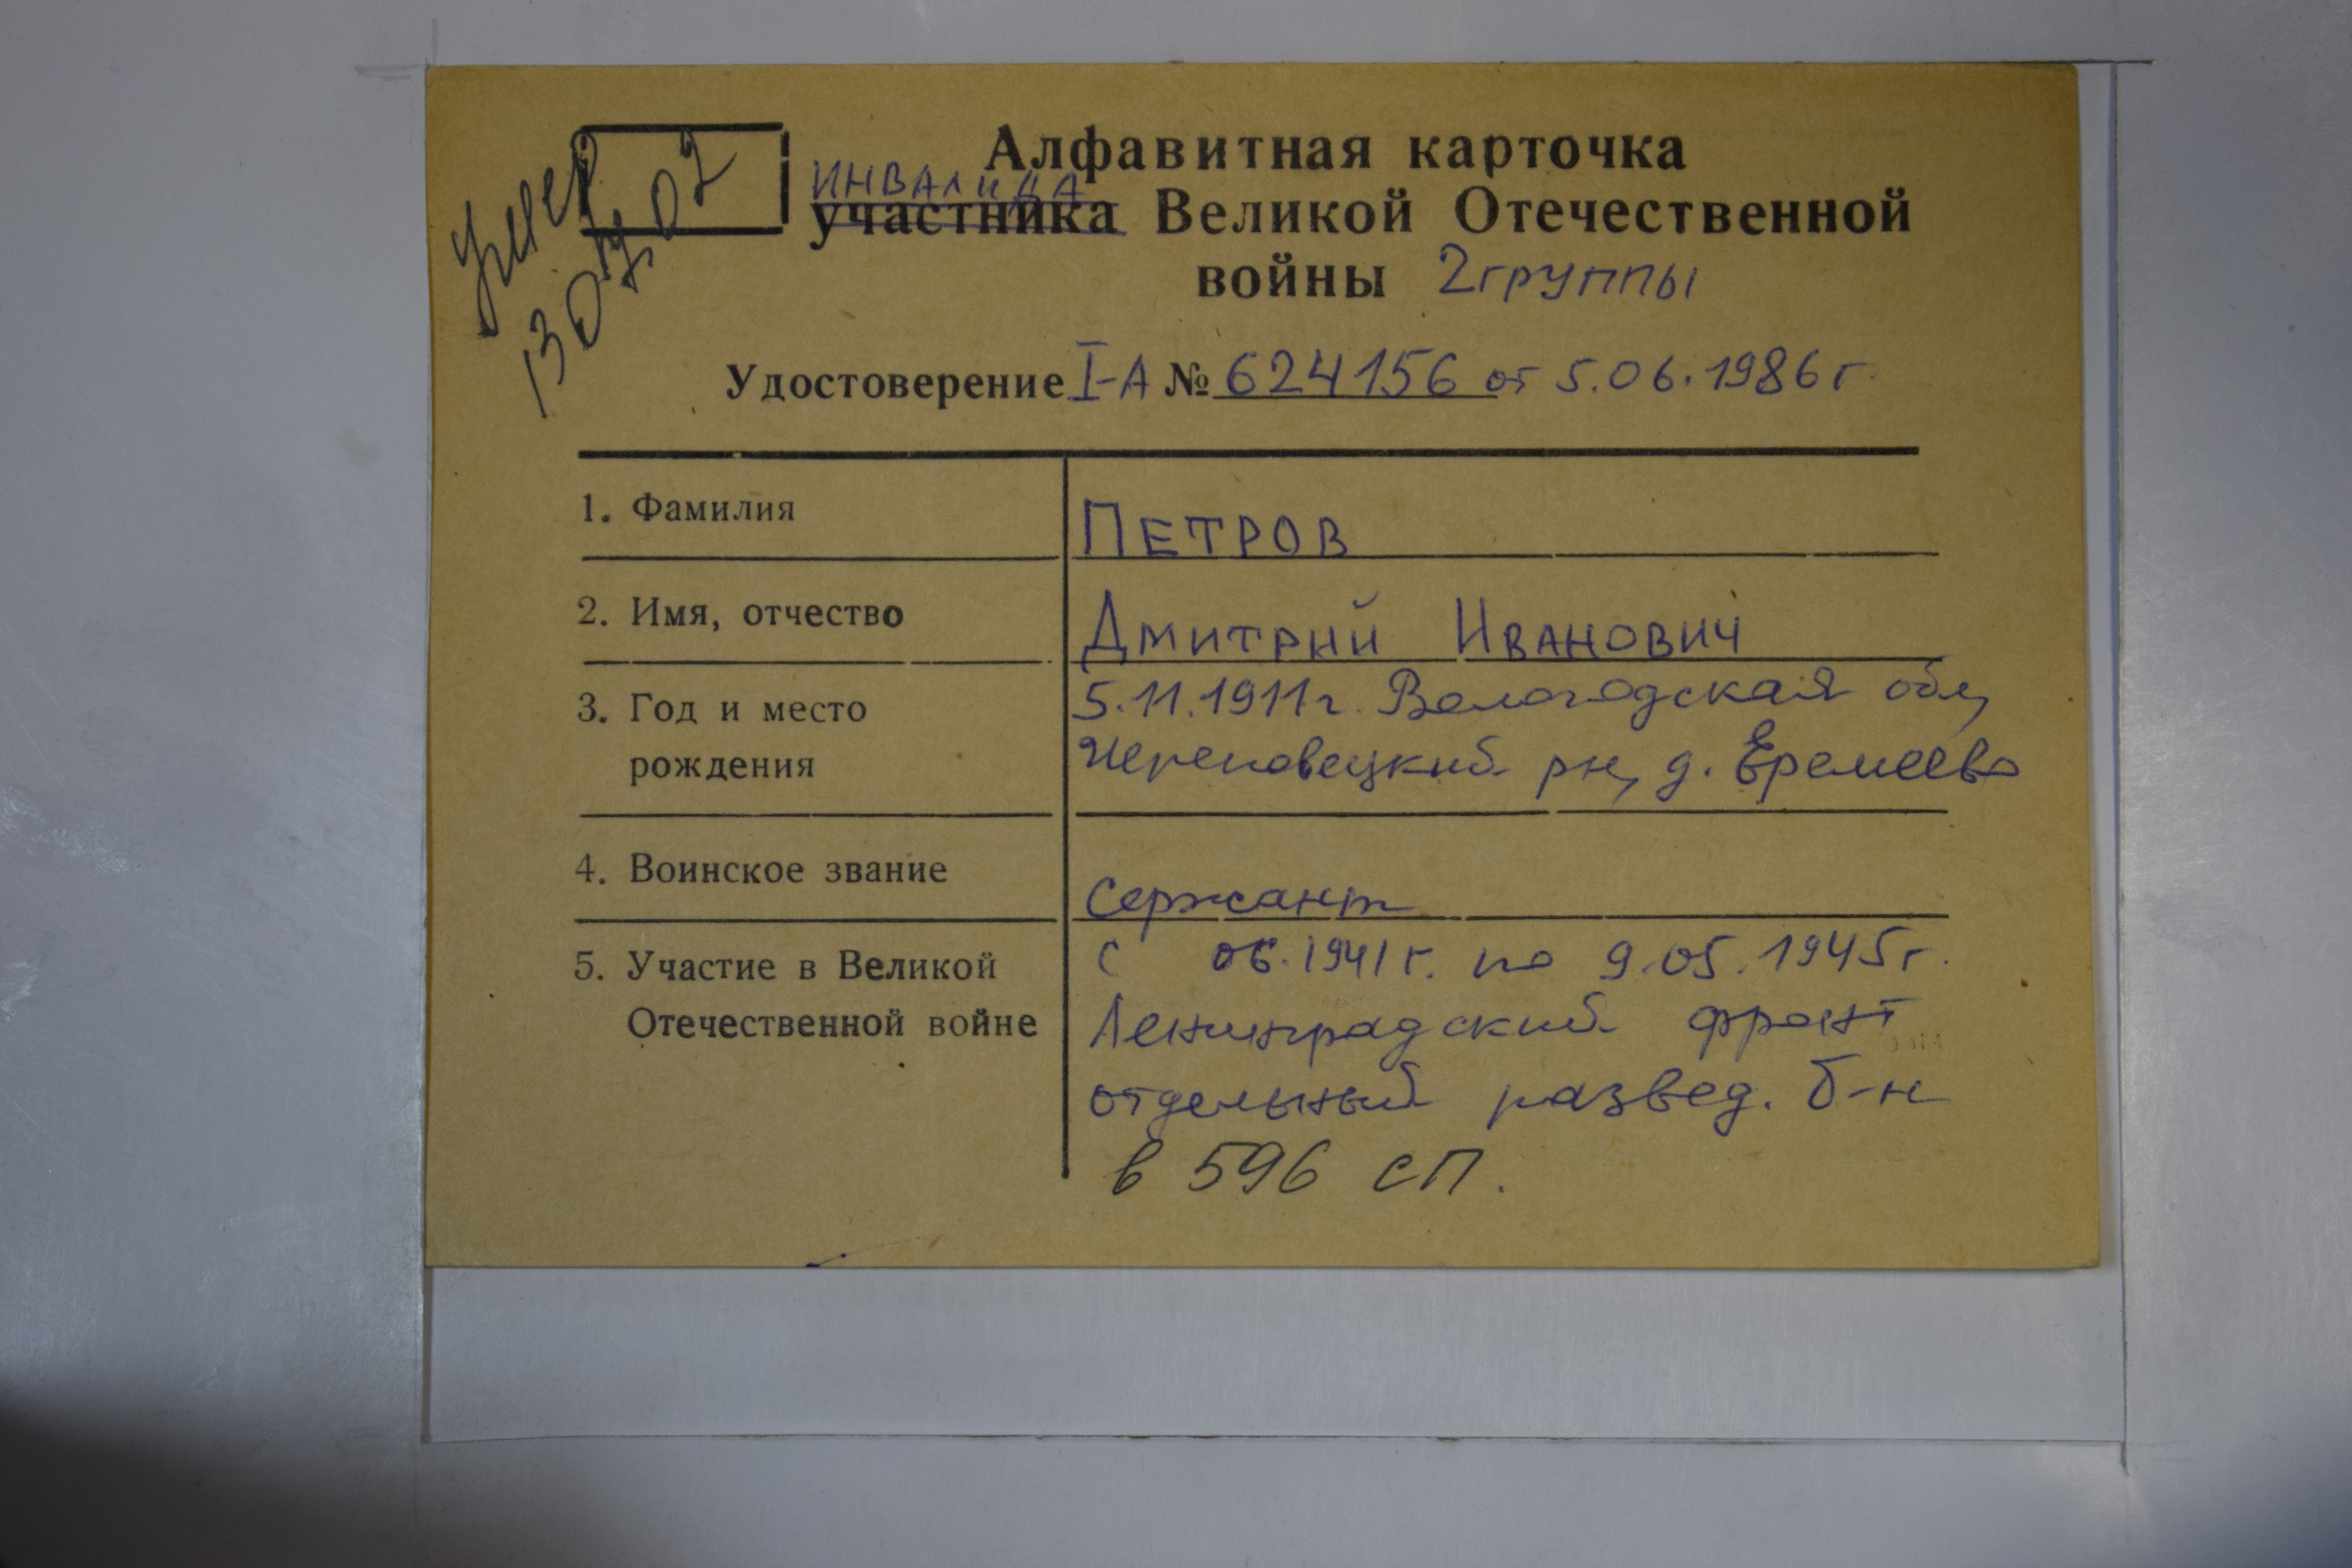 Умер
Алфавитная карточка
ИНВАЛИДА
участника Великой Отечественной
войны 2 группы
Удостоверение I-А № 624156 от 5.06.1986 г.
1. Фамилия ПЕТРОВ
2. Имя, отчество ДМИТРИЙ ИВАНОВИЧ
3. Год и место 5.11.1911 г. Вологодская обл,
рождения Череповецкий рн, д. Еремеево
4. Воинское звание Сержант
5. Участие в Великой с 06.1941 г. по 9.05.1945 г.
Отечественной войне Ленинградский фронт
отдельный развед. б-н
в 596 сп.